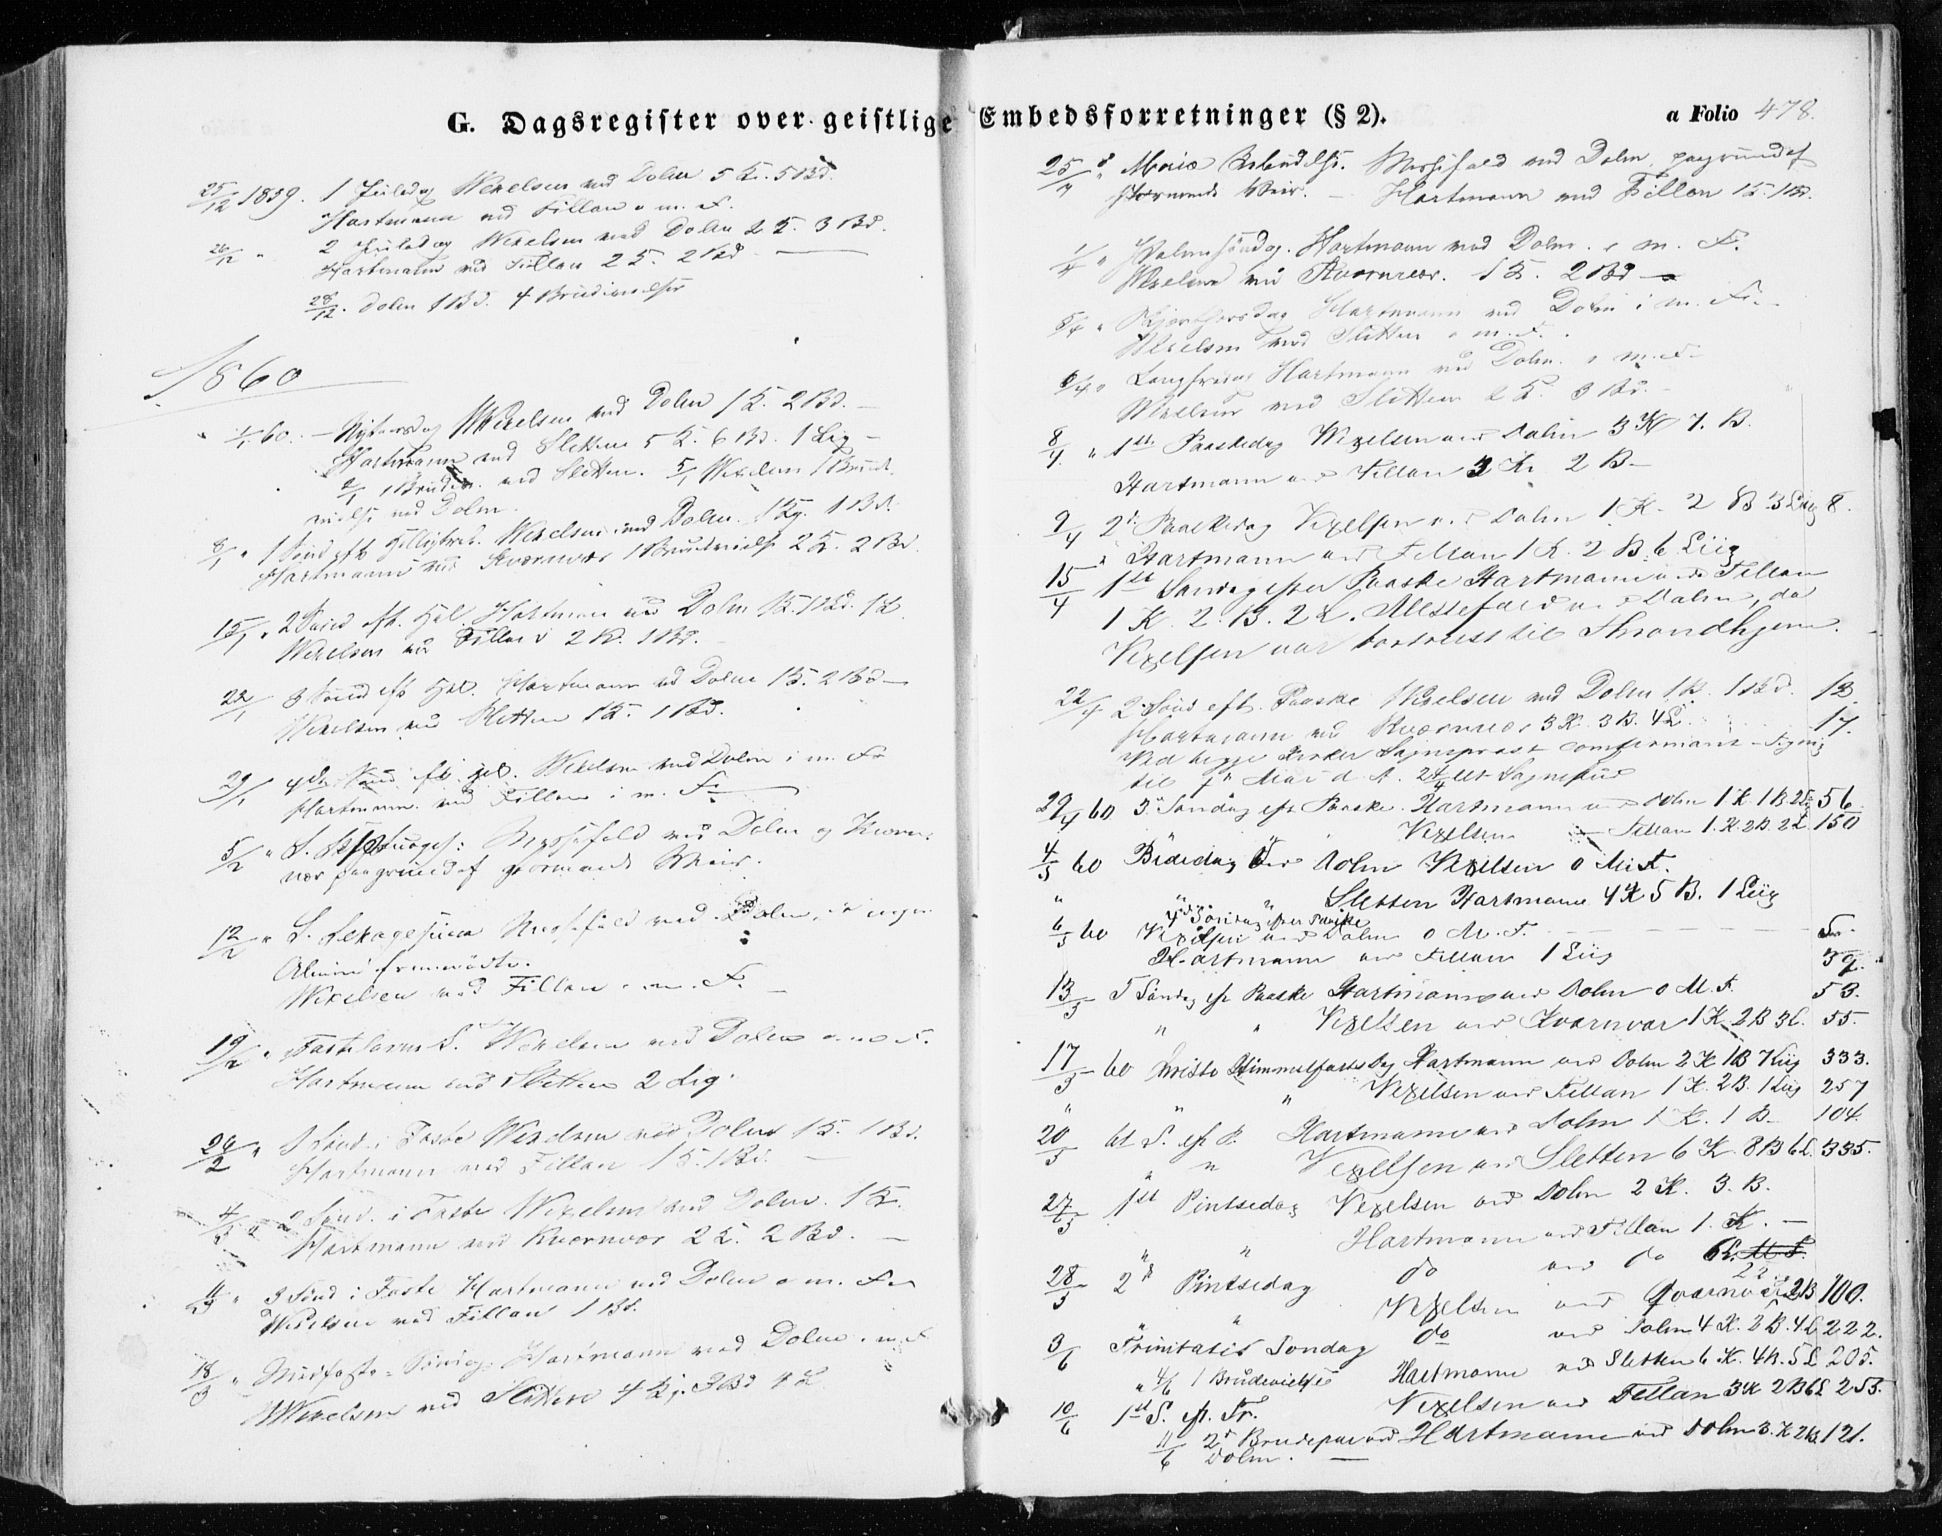 G. Dagsregister over geistlige Embedsforretninger (§ 2).
a Folio 478.
25/12 1859. 1 Juledag Wexelsen ved Dolm 5 K. 5 Bd.
Hartmann ved Fillan o m. F.
26/12 " 2 Juledag Wexelsen ved Dolm 2 K. 3 Bd.
Hartmann ved Fillan 2 K. 2 Bd
28/12. Dolm 1 Bd. 4 Brudevielser
1860
1/1 60. - Nytaarsdag Wexelsen ved Dolm 1 K. 2 Bd. -
Hartmann ved Sletten 5 K. 6 Bd. 1 Lig -
2/1 1 Brudev. ved Sletten. 5/1 Wexelsen 1 Brude-
vielse ved Dolm.
8/1 " 1 Sønd. eft. Helligtrek. Wexelsen ved Dolm. 1 K. 1 Bd.
Hartmann ved Kvernvær 1 Brudevielse 2 K. 2 Bd.
15/1 " 2 Sønd. eft. Hel. Hartmann ved Dolm 1 K. 1 Bd. 1 L.
Wexelsen ved Fillan 2 K. 1 Bd.
22/1 3 Sønd eft Hel. Hartmann ved Dolm 1 K. 2 Bd -
Wexelsen ved Sletten 1 K. 1 Bd.
29/1 4de Sønd. eft. Hel. Wexelsen ved Dolm i m. Fr
Hartmann ved Fillan i m. F.
5/2 " S. Septuages: Messefald ved Dolm og Kvern-
vær paagrund af stormende Veir.
12/2 " S. Sexagesima Messefald ved Dolm, da ingen
Almue fremmødte.
Wexelsen ved Fillan o m. F. -
19/2 " Fastelavns S. Wexelsen ved Dolm o m F.
Hartmann ved Sletten 2 Lig.
26/2 " 1 Sønd. i Faste Wexelsen ved Dolm 1 K. 1 Bd.
Hartmann ved Fillan 1 K. 1 Bd. -
4/3 " 2 Sønd. i Faste Wexelsen ved Dolm. 1 K.
Hartmann ved Kvernvær 2 K. 2 Bd. -
11/3 " 3 Sønd i Faste Hartmann ved Dolm o m. F.
Wexelsen ved Fillan 1 Bd.
18/3 " Midfaste-Søndag Hartmann ved Dolm o m. F
Wexelsen ved Sletten 4 K. 3 Bd 1 L
25/3 " Mariæ Bebudelse. Messefald ved Dolm, paagrund af
stormende Veir. - Hartmann ved Fillan 1 K. 1 Bd.
1/4 " Palmesøndag. Hartmann ved Dolm. o m. F.
Wexelsen ved Kvernvær. 1 K. 2 Bd
5/4 " Skjærthorsdag Hartmann ved Dolm i m. Fr.
Wexelsen ved Sletten o m. F.
6/4 " Langfredag Hartmann ved Dolm. o m. F.
Wexelsen ved Sletten 2 K. 3 Bd.
8/4. " 1st Paaskedag Wexelsen ved Dolm 3 K 7. B.
Hartmann ved Fillan 3 K. 2 B -
9/4 2d Paaskedag Vexelsen ved Dolm 1 K. 2 B 3 Liig 8.
" Hartmann ved Fillan 1 K. 2 B. 6 Liig
15/4 1st Søndag efter Paaske Hartmann ved Fillan
1 K. 2. B. 2 L. Messefald ved Dolm, da
Vexelsen var bortreist til Throndhjem.
22/4 2 Sønd. eft. Paaske Wexelsen ved Dolm 1 K. 1 Bd. 13
Hartmann ved Kvernvær 3 K. 3 B. 4 L 17.
Ved begge Kirker
29/4 60 3 Søndag eft Paaske. Hartmann ved Dolm 1 K. 1 B. 2 L 56
Vexelsen - Fillan 1. K. 2 B. 2 L. 150
4/5 60 Bededag ved Dolm Vexelsen o M. F.
" " " Sletten Hartmann 4 K 5 B. 1 Liig
4d Søndag efter Paaske
6/5 60 Vexelsen ved Dolm o M. F.
Hartmann ved Fillan 1 Liig 39.
13/5 5 Søndag eft Paaske Hartmann ved Dolm o M. F. 53.
" " Vexelsen ved Kvernvær 1 K. 2 B 3 L. 55.
17/5 60 Christi Himmelfarts Dag Hartmann ved Dolm 2 K 1 B 7 Liig 333.
" " Vexelsen ved Fillan 1 K. 2 B. 1 Liig 257
20/5 6t S. eft P. Hartmann ved Dolm 1 K. 1 B - 104.
" " Vexelsen ved Sletten 6 K. 8 B 6 L. 335.
27/5 1st Pintsedag Vexelsen ved Dolm 2 K. 3. B.
" " Hartmann ved Fillan 1. K. -
28/5 2d Pintsedag do ved do
" " Vexelsen ved Qværnvær 2 B 100.
3/6 Trinitatis Søndag do ved Dolm 4 K. 2 B. 4 L 222.
" 4/6 1 Brudevielse Hartmann ved Sletten 6 K. 4 B. 5 L 205.
10/6 1st S. eft. Tr. Vexelsen ved Fillan 3 K 2 B 6 L 253.
11/6 2d Brudepar ved Hartmann ved Dolm 3. K 2 B. 121.
Dolm. -